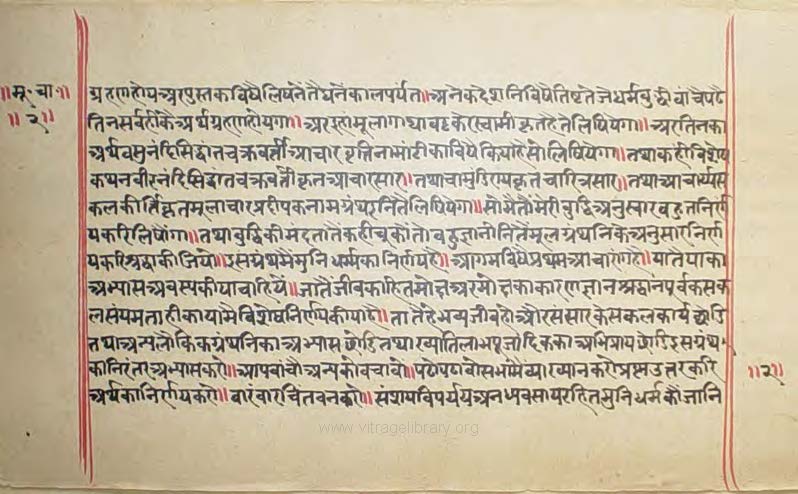 ॥मू॰चा॰॥
॥२॥
ग्रहणहोय अर पुस्तकविषैलिषनैतैघनैकालपर्यंत॥अनेकदेशनिविषैतिष्टतेजेधर्मबुद्धीवांचैपढै
तिनसर्वहीकैअर्थग्रहणहोयगा॥अरइहांमूलगाथावट्टकेरस्वामीकृतहैतेलिषियेगा॥अरतिनका
अर्थवसुनंदिसिद्धांतचक्रवर्तीआचारवृत्तिनामाटीकाविषैकियाहैसोलिषियेगा॥तथाकहीविशेष
कथनवीरनंदिसिद्धांतचक्रवर्तीकृतआचारसार॥तथाचामुंडरायकृतचारित्रसार॥तथाआचार्यस
कलकीर्तिकृतमूलाचारप्रदीपकनामग्रंथइनितैलिषियेगा॥सोमैतोमेरीबुद्धिअनुसारबहुतनिर्ण
यकरिलिषोंगा॥तथाबुद्धिकीमंदतातैकहीचूकौंतोबहुज्ञानीतिनैमूलग्रंथनिकेअनुसारनिर्ण
यकरिश्रद्धाकीजियो॥इसग्रंथमैमुनिधर्मकानिर्णयहै॥आगमविषैप्रथमआचारांगहै॥यातैयाका
अभ्यासअवस्यकीयाचाहिये॥जातैजीवकाहितमोक्षअरमोक्षकाकारणज्ञानश्रद्धानपूर्वकसक
लसंयमताहीकायामैविशेषनिर्णयकीयाहै॥तातैहेभव्यजीवहोऔरसंसारकेसकलकार्यछोडि
तथाअन्यलौकिकग्रंथनिकाअभ्यासछोडितथाख्यातिलाभपूजादिककाअभिप्रायछोडिइसग्रंथ
कानिरंतरअभ्यासकरो॥आपवांचौअन्यकोवचावो॥पढोपढावोसभामैव्याख्यानकरोप्रष्नउत्तरकरि
अर्थकानिर्णयकरो॥वारंवारचिंतवनकरो॥संशयविपर्ययअनध्यवसायरहितमुनिधर्मकौंजानि
॥२॥
www.vitragelibrary.org